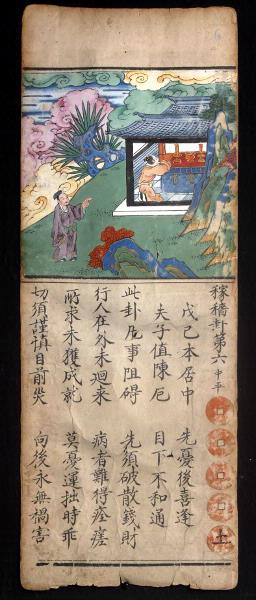 稼穡卦第六 中平
戊己本居中 先憂後喜逢
夫子值陳厄 目下不和通
此卦凡事阻碍 先須破散錢財
行人在外未廻來 病者難得痊瘥
所求未獲成就 莫憂運拙時乖
切須謹慎目前災 向後永無禍害
上